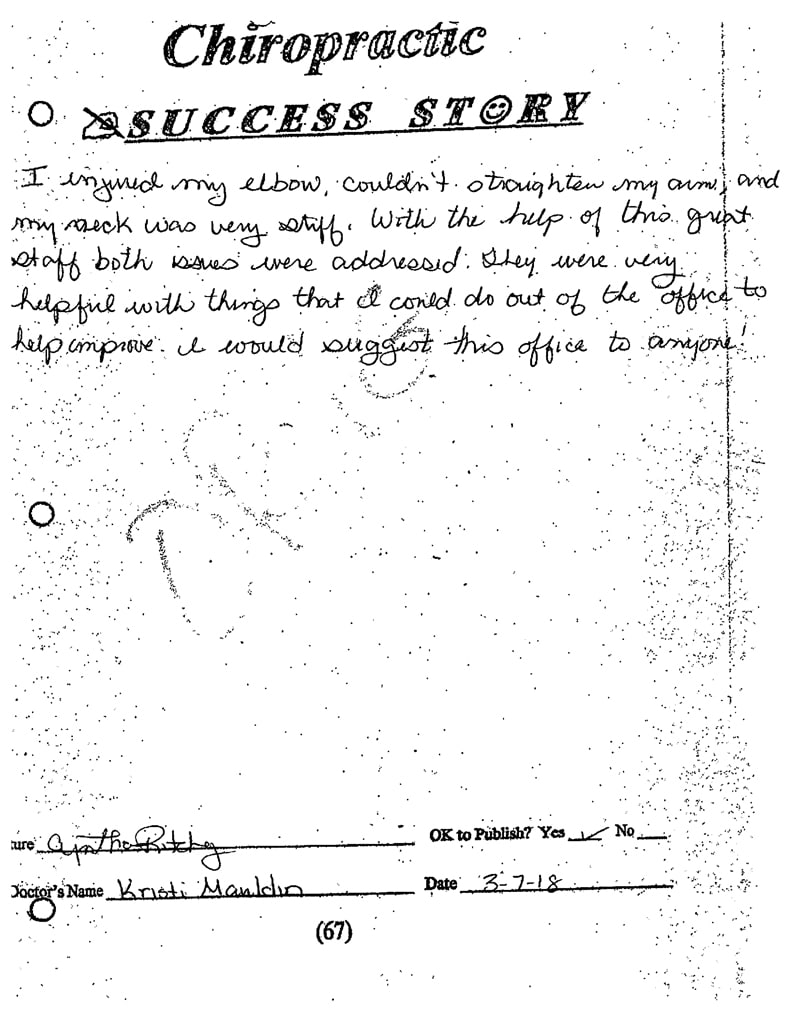 Chiropractic
SUCCESS STORY
I injured my elbow, couldn't straighten my arm, and
my neck was very stiff. With the help of this great
staff both issues were addressed. They were very
helpful with things that I could do out of the office to
help improve. I would suggest this office to anyone!
ure OK to Publish? Yes ✓ No
Doctor's Name Kristi Mauldin Date 3-7-18
(67)